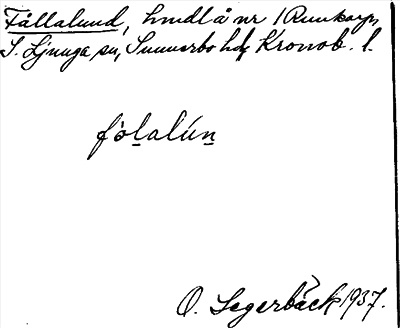 Fållalund, hmdl å nr 1 Runkarp,
S. Ljunga sn, Sunnerbo hd, Kronob. l.
fòlalún
O. Segerbäck 1937.